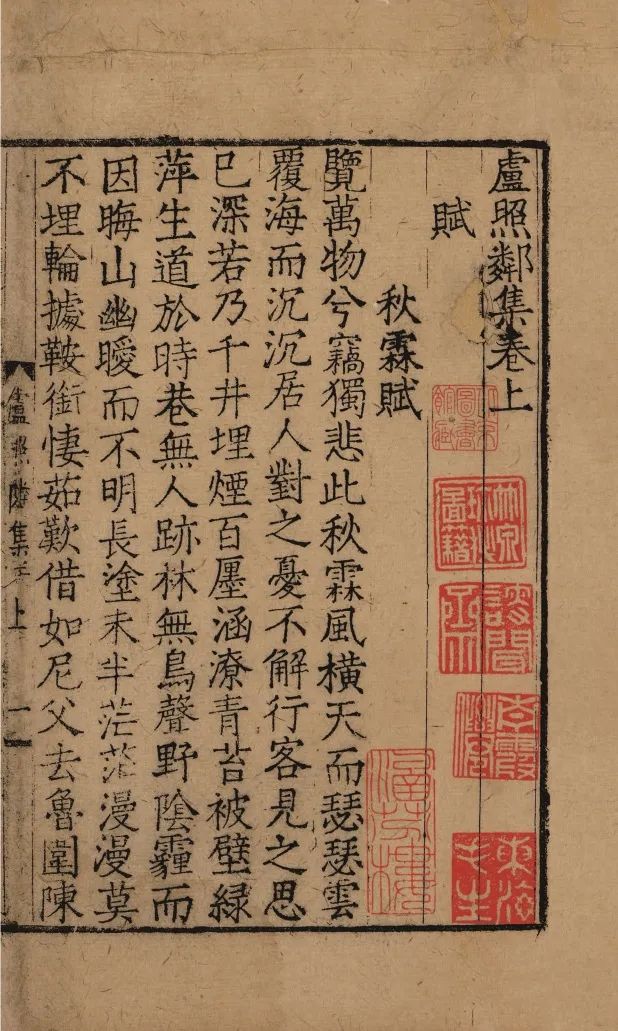 盧照鄰集卷上
賦
秋霖賦
覽萬物兮竊獨悲此秋霖風橫天而瑟瑟雲
覆海而沉沉居人對之憂不解行客見之思
已深若乃千井埋煙百廛涵潦青苔被壁綠
萍生道於時巷無人跡林無鳥聲野陰霾而
因晦山幽曖而不明長塗未半茫茫漫漫莫
不埋輪據鞍銜悽茹歎借如尼父去魯圍陳
盧照鄰集 上 一
東海